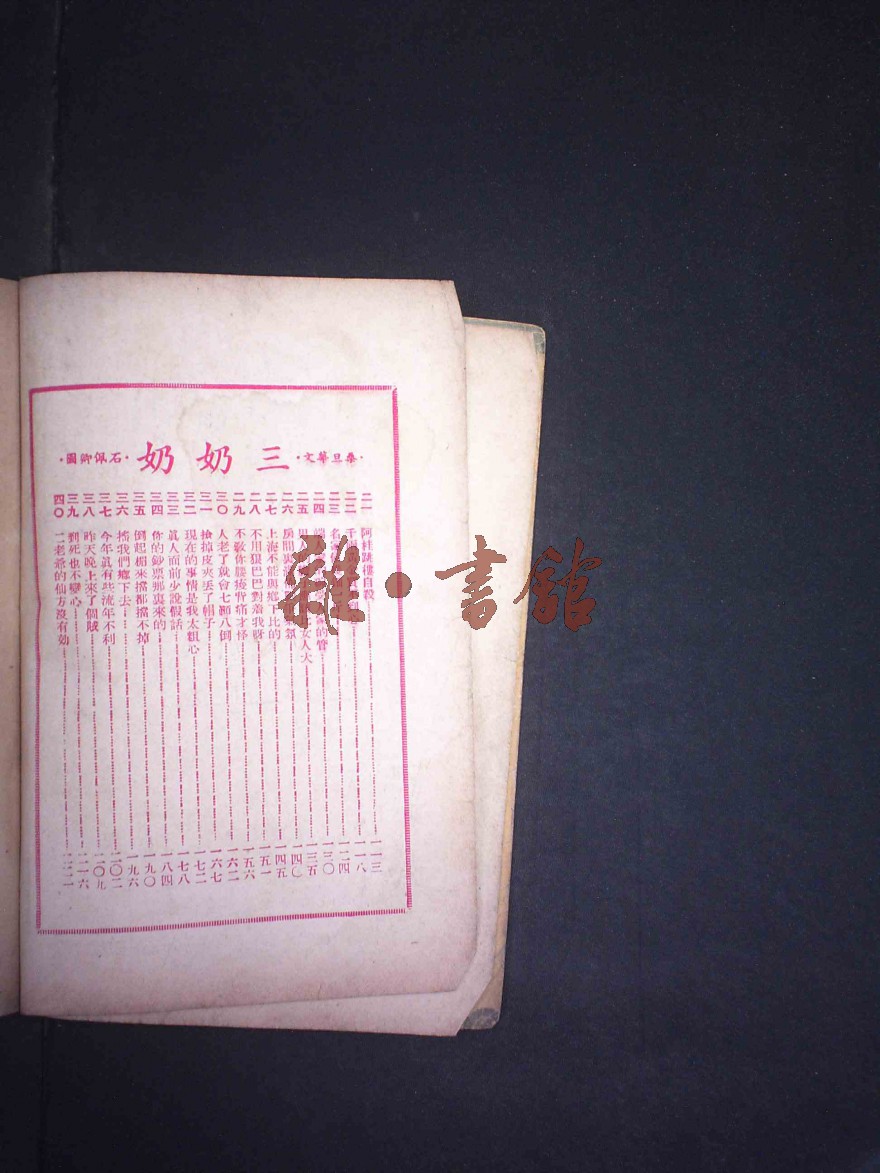 ·桑旦華文·三奶奶·石佩卿圖·
二一 阿桂跳樓自殺 一一三
二二 千 一一八
二三 名 一二四
二四 的管 一三〇
二五 比女人大 一三五
二六 房間裏 氛 一四〇
二七 上海不能與鄉下比的 一四五
二八 不用狠巴巴對着我呀 一五一
二九 不敎你腰痠背痛才怪 一五六
三〇 人老了就會七顛八倒 一六二
三一 搶掉皮夾丟了帽子 一六七
三二 現在的事情是我太粗心 一七二
三三 眞人面前少說假話 一七八
三四 你的鈔票那裏來的 一八四
三五 倒起楣來擋都擋不掉 一九〇
三六 搭我們鄉下去 一九六
三七 今年眞有些流年不利 二〇二
三八 昨天晚上來了個賊 二〇九
三九 到死也不變心 二一六
四〇 二老爺的仙方沒有効 二二一
雜·書館